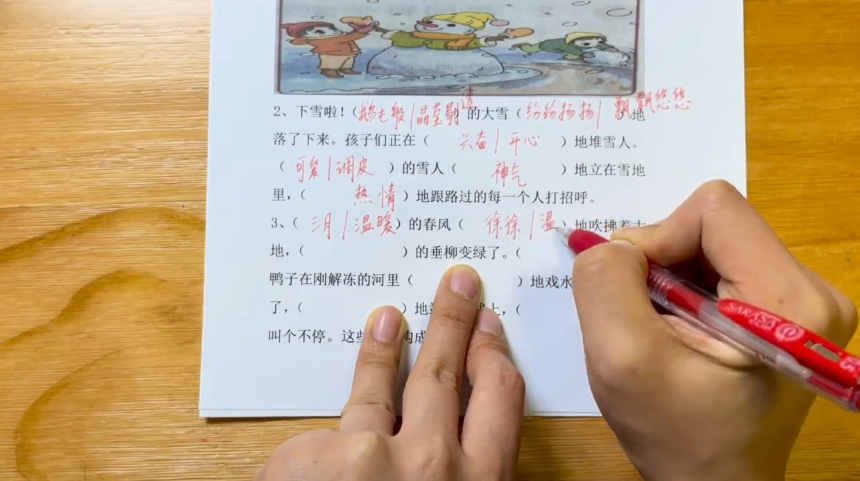 2、下雪啦！(鹅毛般/晶莹剔透)的大雪(纷纷扬扬/飘飘悠悠)地
落了下来。孩子们正在(兴奋/开心)地堆雪人。
(可爱/调皮)的雪人(神气)地立在雪地
里，(热情)地跟路过的每一个人打招呼。
3、(三月/温暖)的春风(徐徐/温)地吹拂着大
地，( )的垂柳变绿了。(
鸭子在刚解冻的河里( )地戏水
了，( )地 上，(
叫个不停。这些 构成
SARASA